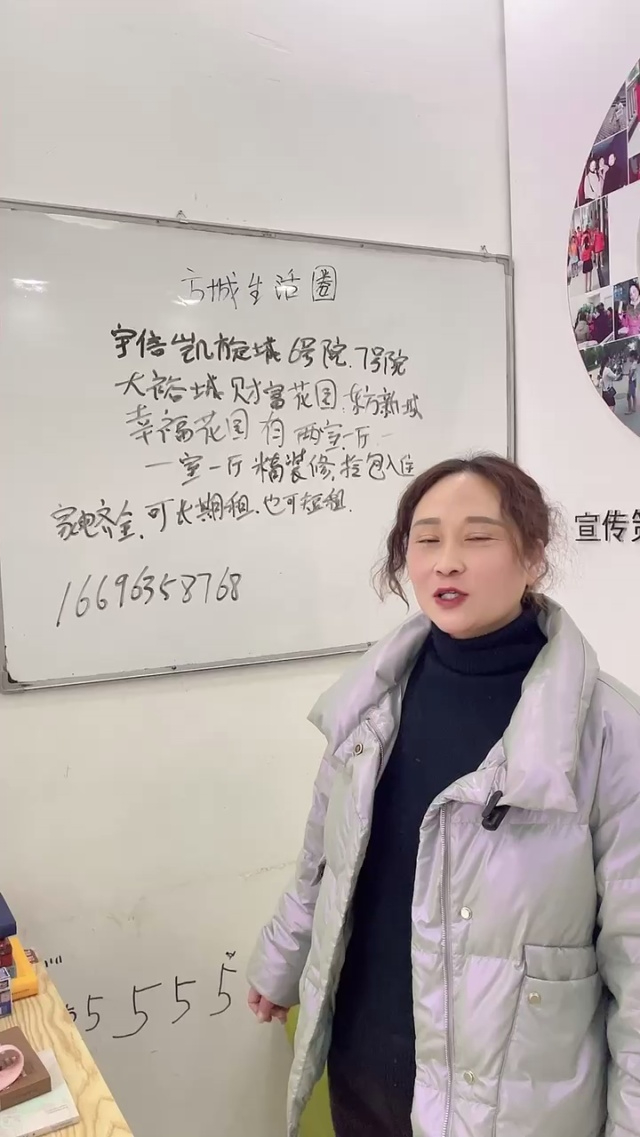 方城生活圈
宇信凯旋城6号院.7号院
大裕城财富花园.东方新城
幸福花园有两室一厅一
一室一厅精装修,拎包入住
家电齐全.可长期租.也可短租.
16696358768
宣传策
5 5 5 5 5